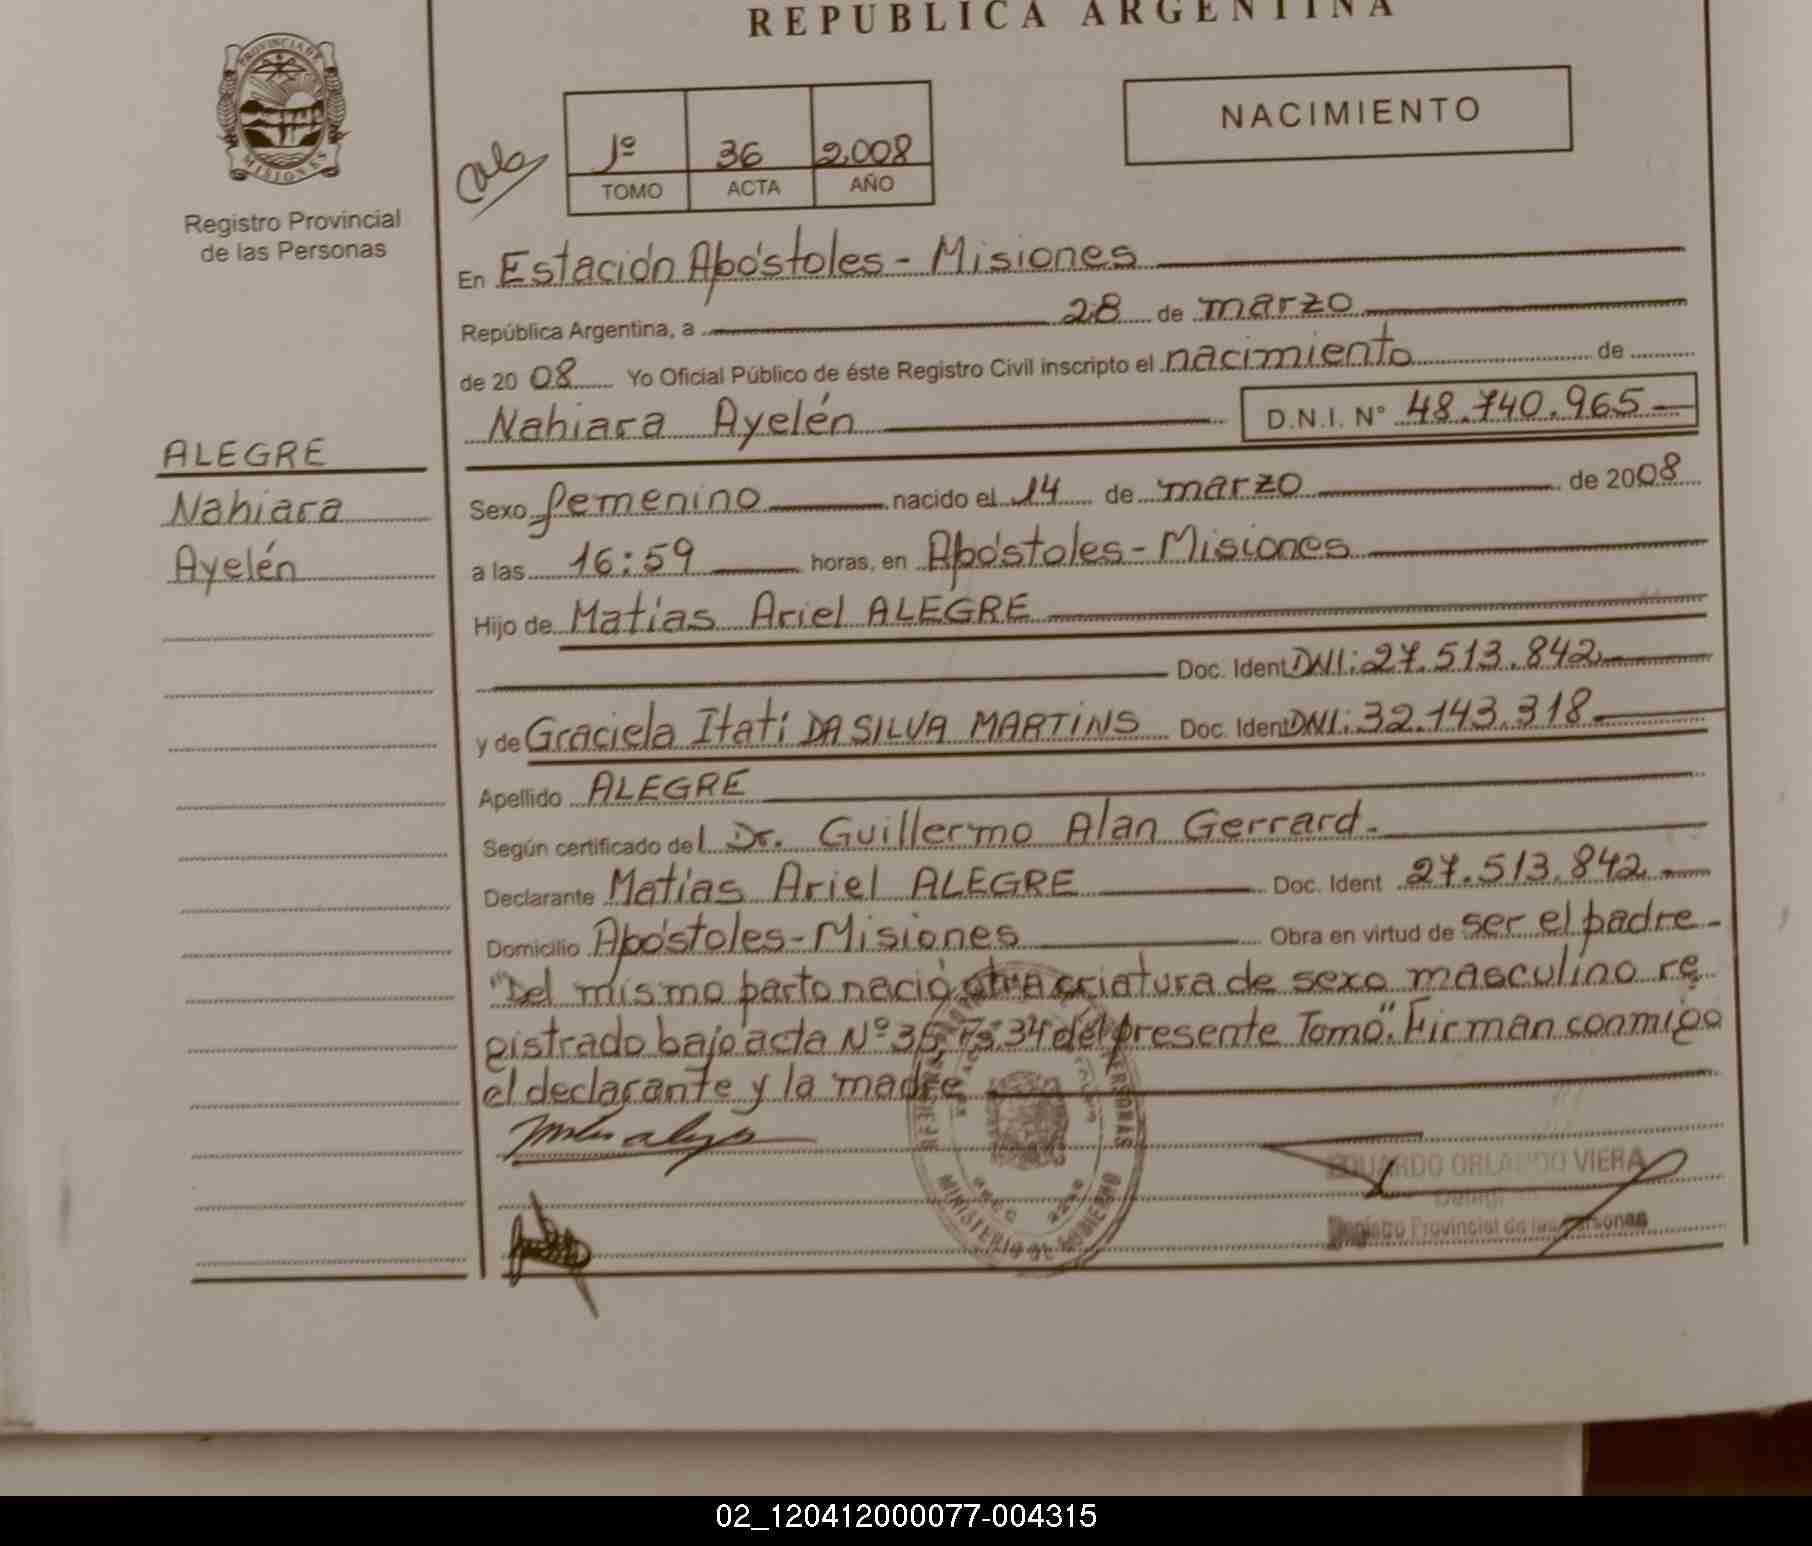 REPUBLICA ARGENTINA
PROVINCIA DE
MISIONES
Registro Provincial
de las Personas
1º 36 2.008
TOMO ACTA AÑO
NACIMIENTO
En Estación Apóstoles - Misiones
República Argentina, a 28 de marzo
de 2008 Yo Oficial Público de éste Registro Civil inscripto el nacimiento de
Nahiara Ayelén D.N.I. N° 48.740.965
ALEGRE
Nahiara
Ayelén
Sexo femenino nacido el 14 de marzo de 2008
a las 16:59 horas, en Apóstoles - Misiones
Hijo de Matías Ariel ALEGRE
Doc. Ident DNI: 27.513.842
y de Graciela Itatí DA SILVA MARTINS Doc. Ident DNI: 32.143.318
Apellido ALEGRE
Según certificado del Dr. Guillermo Alan Gerrard.
Declarante Matías Ariel ALEGRE Doc. Ident 27.513.842
Domicilio Apóstoles - Misiones Obra en virtud de ser el padre -
"Del mismo parto nació otra criatura de sexo masculino re
gistrado bajo acta Nº 35, Fº 34 del presente Tomo". Firman conmigo
el declarante y la madre
EDUARDO ORLANDO VIERA
Registro Provincial de las Personas
PERSONAS
MINISTERIO DE GOBIERNO
02_120412000077-004315